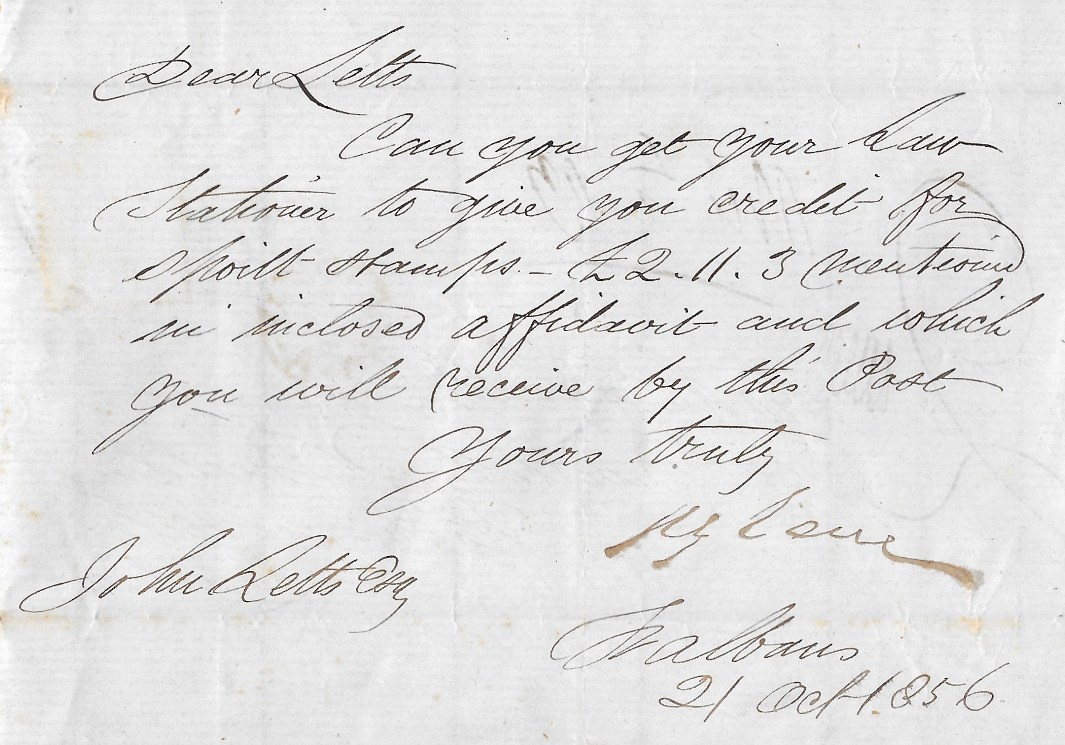 Dear Letts
Can you get your Law
Stationer to give you credit for
spoilt stamps - £2.11.3 mentioned
in inclosed affidavit and which
you will receive by this Post
Yours truly
John Letts Esq
St albans
21 Oct 1856